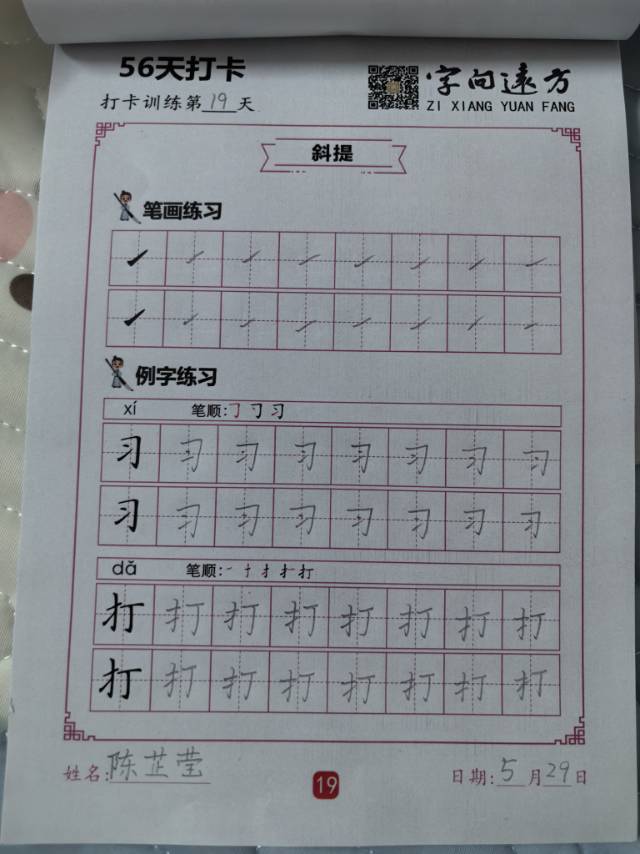 56天打卡
字向远方
打卡训练第19天
ZI XIANG YUAN FANG
斜提
笔画练习
㇀ ㇀ ㇀ ㇀ ㇀ ㇀ ㇀ ㇀
㇀ ㇀ ㇀ ㇀ ㇀ ㇀ ㇀ ㇀
例字练习
xí 笔顺:
习 习 习 习 习 习 习 习
习 习 习 习 习 习 习 习
dǎ 笔顺:
打 打 打 打 打 打 打 打
打 打 打 打 打 打 打 打
姓名:陈芷莹
19
日期:5月29日